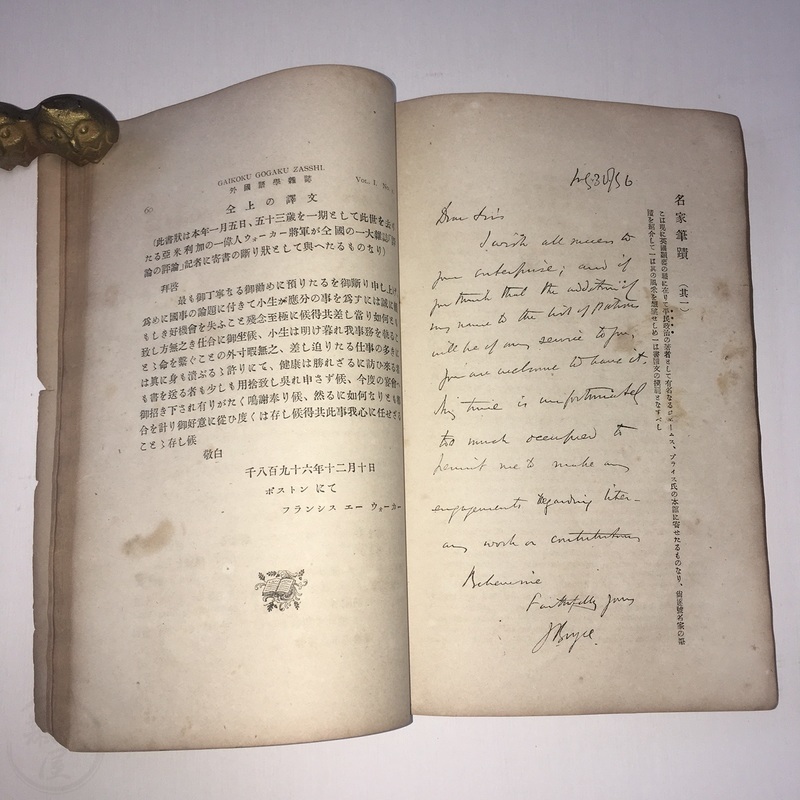 GAIKOKU GOGAKU ZASSHI.
外國語學雜誌
VOL. I. No.
仝上の譯文
(此書狀は本年一月五日、五十三歲を一期として此世を去
たる亞米利加の一偉人ウォーカー將軍が仝國の一大雜誌
論の評論」記者に寄書の斷り狀として與へたるものなり)
拜啓
最も御丁寧なる御勸めに預りたるを御斷り申し上げ
爲めに國事の論題に付きて小生が應分の事を爲すには誠に
もしき好機會を失ふこと殘念至極に候得共差し當り如何とも
致し方無之き仕合に御坐候、小生は明け暮れ我事務を執る
とゝ命を繫ぐことの外寸暇無之、差し迫りたる仕事の多き
は眞に身も潰ぶるゝ許りにて、健康は勝れざるに訪ひ來る
も書を送る者も少しも用捨致し吳れ申さず候、今度の宴會
御招き下され有りがたく鳴謝奉り候、然るに如何なりとも
合を計り御好意に從ひ度くは存し候得共此事我心に任せざ
ことゝ存し候
敬白
千八百九十六年十二月十日
ボストンにて
フランシス エー ウォーカー
名家筆蹟 (其一)
こは現に英國顯要の職に在りて平民政治の著者として有名なるジェームス、ブライス氏の本誌に寄せたるものなり、尙逐號名家の筆
蹟を紹介して一は其の風采を想望せしめ一は書簡文の模範となすべし
Dear Sir
I wish all success to
your enterprise; and if
you think that the addition of
my name to the list of Patrons
will be of any service to you,
you are welcome to have it.
My time is unfortunately
too much occupied to
permit me to make any
engagements regarding liter-
ary work or contributions
Believe me
Faithfully yours
J Bryce